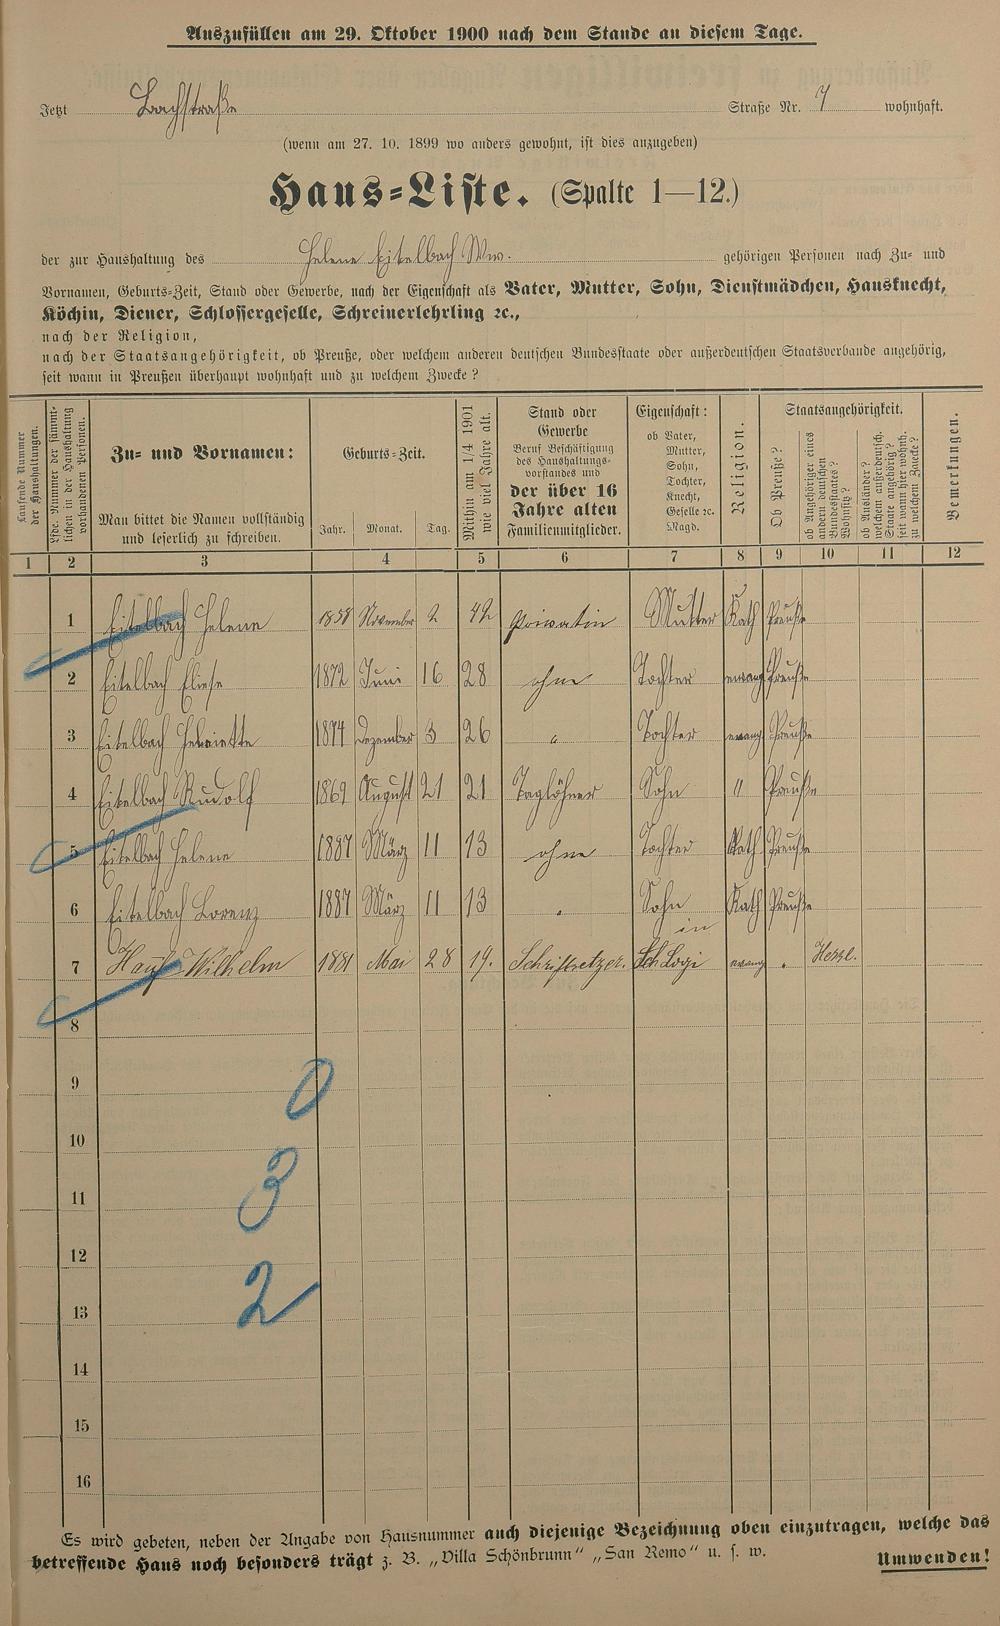 Auszufüllen am 29. Oktober 1900 nach dem Stande an diesem Tage.
Jetzt Bachstraße Straße Nr. 7 wohnhaft.
(wenn am 27. 10. 1899 wo anders gewohnt, ist dies anzugeben)
Haus-Liste. (Spalte 1—12.)
der zur Haushaltung des Helene Eitelbach Ww. gehörigen Personen nach Zu- und
Vornamen, Geburts-Zeit, Stand oder Gewerbe, nach der Eigenschaft als Vater, Mutter, Sohn, Dienstmädchen, Hausknecht,
Köchin, Diener, Schlossergeselle, Schreinerlehrling ꝛc.,
nach der Religion,
nach der Staatsangehörigkeit, ob Preuße, oder welchem anderen deutschen Bundesstaate oder außerdeutschen Staatsverbande angehörig,
seit wann in Preußen überhaupt wohnhaft und zu welchem Zwecke?
Laufende Nummer der Haushaltungen.
Lfde. Nummer der sämmtlichen in der Haushaltung vorhandenen Personen.
Zu- und Vornamen:
Man bittet die Namen vollständig
und leserlich zu schreiben.
Geburts-Zeit.
Jahr. Monat. Tag.
Mithin am 1/4 1901 wie viel Jahre alt.
Stand oder
Gewerbe
Beruf Beschäftigung
des Haushaltungs-
vorstandes und
der über 16
Jahre alten
Familienmitglieder.
Eigenschaft:
ob Vater,
Mutter,
Sohn,
Tochter,
Knecht,
Geselle ꝛc.
Magd.
Religion.
Staatsangehörigkeit.
Ob Preuße?
ob Angehöriger eines andern deutschen Bundesstaates? Wohnsitz?
ob Ausländer? welchem außerdeutsch. Staate angehörig? seit wann hier wohnh. zu welchem Zwecke?
Bemerkungen.
1 2 3 4 5 6 7 8 9 10 11 12
1 Eitelbach Helene 1858 November 2 42 Privatin Mutter Kath Preuße
2 Eitelbach Eliese 1872 Juni 16 28 ohne Tochter evang Preuße
3 Eitelbach Henriette 1874 Dezember 3 26 " Tochter evang Preuße
4 Eitelbach Rudolf 1869 August 21 21 Taglöhner Sohn " Preuße
5 Eitelbach Helene 1887 März 11 13 ohne Tochter Kath Preuße
6 Eitelbach Lorenz 1887 März 11 13 " Sohn Kath Preuße
7 Wilhelm 1881 Mai 28 19. Schriftsetzer. in Schlogi evang "
8
9
0
10
3
11
12
2
13
14
15
16
Es wird gebeten, neben der Angabe von Hausnummer auch diejenige Bezeichnung oben einzutragen, welche das
betreffende Haus noch besonders trägt z. B. „Villa Schönbrunn" „San Remo" u. s. w.
Umwenden!